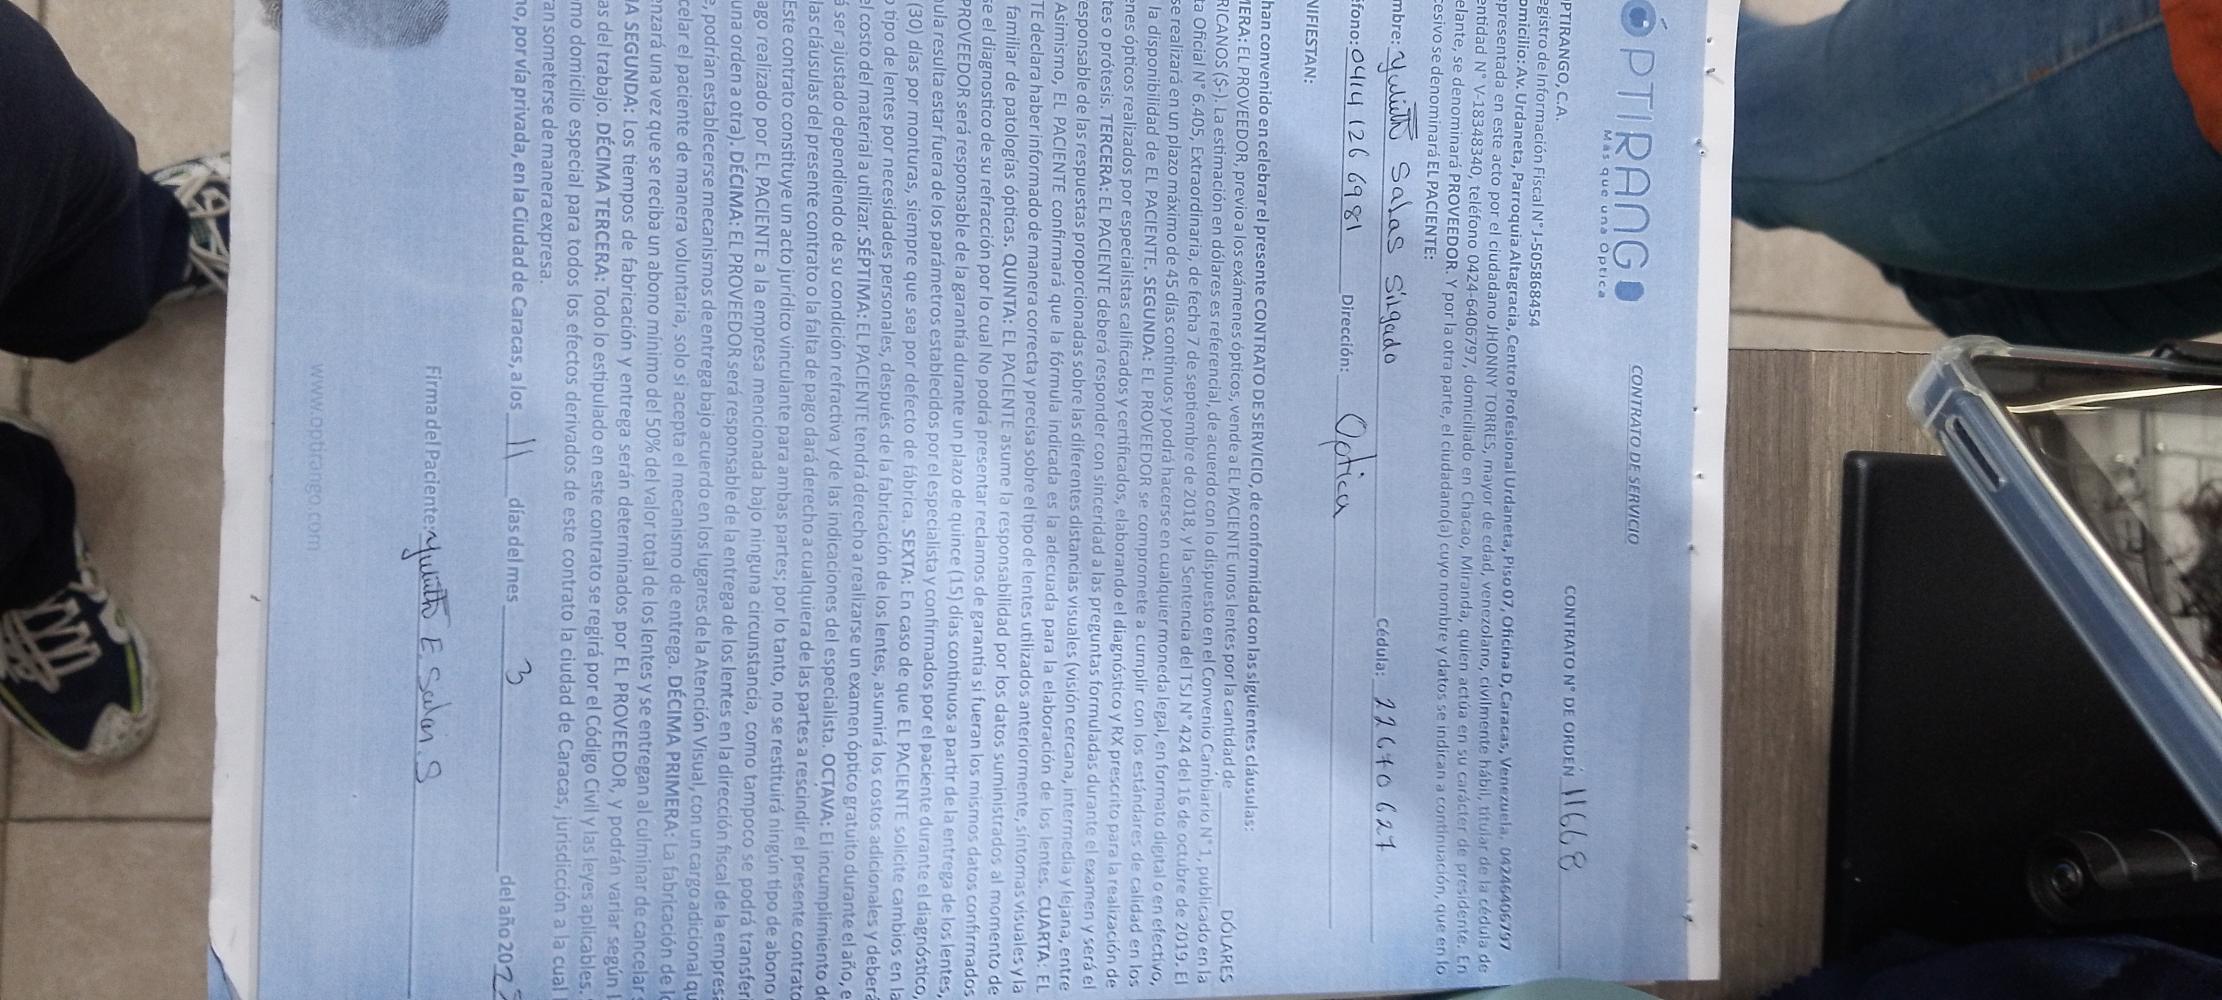 ÓPTIRANGO
Más que una Óptica
CONTRATO DE SERVICIO
CONTRATO N° DE ORDEN 11668
PTIRANGO, C.A.
egistro de Información Fiscal N° J-505868454
omicilio: Av. Urdaneta, Parroquia Altagracia, Centro Profesional Urdaneta, Piso 07, Oficina D, Caracas, Venezuela. 04246406797
epresentada en este acto por el ciudadano JHONNY TORRES, mayor de edad, venezolano, civilmente hábil, titular de la cédula de
entidad N° V-18348340, teléfono 0424-6406797, domiciliado en Chacao, Miranda, quien actúa en su carácter de presidente. En
elante, se denominará PROVEEDOR Y por la otra parte, el ciudadano(a) cuyo nombre y datos se indican a continuación, que en lo
cesivo se denominará EL PACIENTE:
mbre: Salas Silgado Cédula: 22670627
fono: 0414 126 6981 Dirección: Optica
NIFIESTAN:
han convenido en celebrar el presente CONTRATO DE SERVICIO, de conformidad con las siguientes cláusulas:
MERA: EL PROVEEDOR, previo a los exámenes ópticos, vende a EL PACIENTE unos lentes por la cantidad de DÓLARES
RICANOS ($-). La estimación en dólares es referencial, de acuerdo con lo dispuesto en el Convenio Cambiario N° 1, publicado en la
ta Oficial N° 6.405, Extraordinaria, de fecha 7 de septiembre de 2018, y la Sentencia del TSJ N° 424 del 16 de octubre de 2019. El
se realizará en un plazo máximo de 45 días continuos y podrá hacerse en cualquier moneda legal, en formato digital o en efectivo,
la disponibilidad de EL PACIENTE. SEGUNDA: EL PROVEEDOR se compromete a cumplir con los estándares de calidad en los
enes ópticos realizados por especialistas calificados y certificados, elaborando el diagnóstico y RX prescrito para la realización de
tes o prótesis. TERCERA: EL PACIENTE deberá responder con sinceridad a las preguntas formuladas durante el examen y será el
esponsable de las respuestas proporcionadas sobre las diferentes distancias visuales (visión cercana, intermedia y lejana, entre
Asimismo, EL PACIENTE confirmará que la fórmula indicada es la adecuada para la elaboración de los lentes. CUARTA: EL
TE declara haber informado de manera correcta y precisa sobre el tipo de lentes utilizados anteriormente, síntomas visuales y la
familiar de patologías ópticas. QUINTA: EL PACIENTE asume la responsabilidad por los datos suministrados al momento de
se el diagnostico de su refracción por lo cual No podrá presentar reclamos de garantía si fueran los mismos datos confirmados
PROVEEDOR será responsable de la garantía durante un plazo de quince (15) días continuos a partir de la entrega de los lentes,
ula resulta estar fuera de los parámetros establecidos por el especialista y confirmados por el paciente durante el diagnóstico,
(30) días por monturas, siempre que sea por defecto de fábrica. SEXTA: En caso de que EL PACIENTE solicite cambios en la
o tipo de lentes por necesidades personales, después de la fabricación de los lentes, asumirá los costos adicionales y deberá
el costo del material a utilizar. SÉPTIMA: EL PACIENTE tendrá derecho a realizarse un examen óptico gratuito durante el año, e
á ser ajustado dependiendo de su condición refractiva y de las indicaciones del especialista. OCTAVA: El incumplimiento d
las cláusulas del presente contrato o la falta de pago dará derecho a cualquiera de las partes a rescindir el presente contrato
Este contrato constituye un acto jurídico vinculante para ambas partes; por lo tanto, no se restituirá ningún tipo de abono
ago realizado por EL PACIENTE a la empresa mencionada bajo ninguna circunstancia, como tampoco se podrá transferi
una orden a otra). DÉCIMA: EL PROVEEDOR será responsable de la entrega de los lentes en la dirección fiscal de la empresa
e, podrían establecerse mecanismos de entrega bajo acuerdo en los lugares de la Atención Visual, con un cargo adicional qu
celar el paciente de manera voluntaria, solo si acepta el mecanismo de entrega. DÉCIMA PRIMERA: La fabricación de lo
enzará una vez que se reciba un abono mínimo del 50% del valor total de los lentes y se entregan al culminar de cancelar
A SEGUNDA: Los tiempos de fabricación y entrega serán determinados por EL PROVEEDOR, y podrán variar según l
as del trabajo. DÉCIMA TERCERA: Todo lo estipulado en este contrato se regirá por el Código Civil y las leyes aplicables.
mo domicilio especial para todos los efectos derivados de este contrato la ciudad de Caracas, jurisdicción a la cual
ran someterse de manera expresa.
no, por vía privada, en la Ciudad de Caracas, a los 11 días del mes 3 del año 202
Firma del Paciente: E. Salas S
www.optirango.com